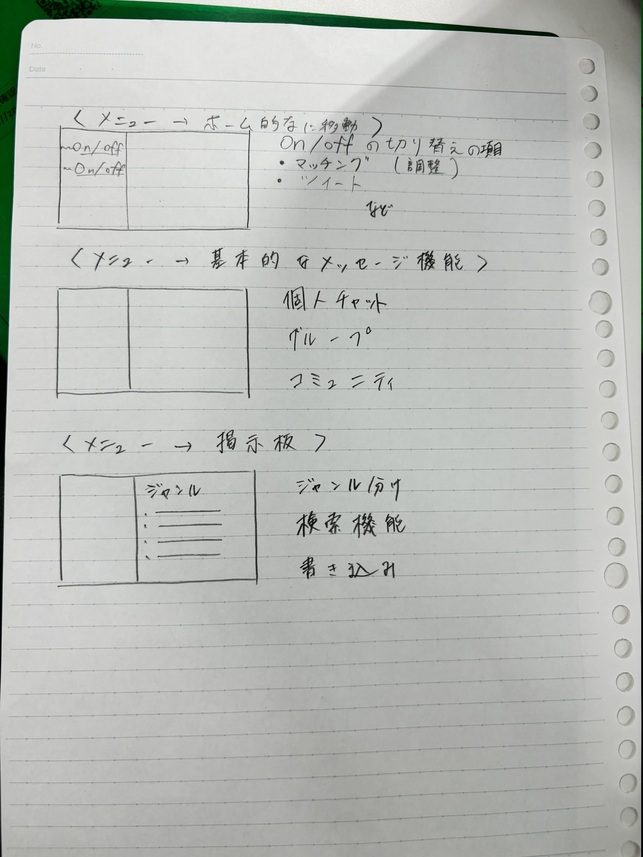 No.
Date
〈 メニュー → ホーム的なに移動 〉
~On/off
~On/off
On/offの切り替えの項目
・マッチング (調整)
・ツイート
など
〈 メニュー → 基本的なメッセージ機能 〉
個人チャット
グループ
コミュニティ
〈 メニュー → 掲示板 〉
ジャンル
ジャンル分け
検索機能
書き込み